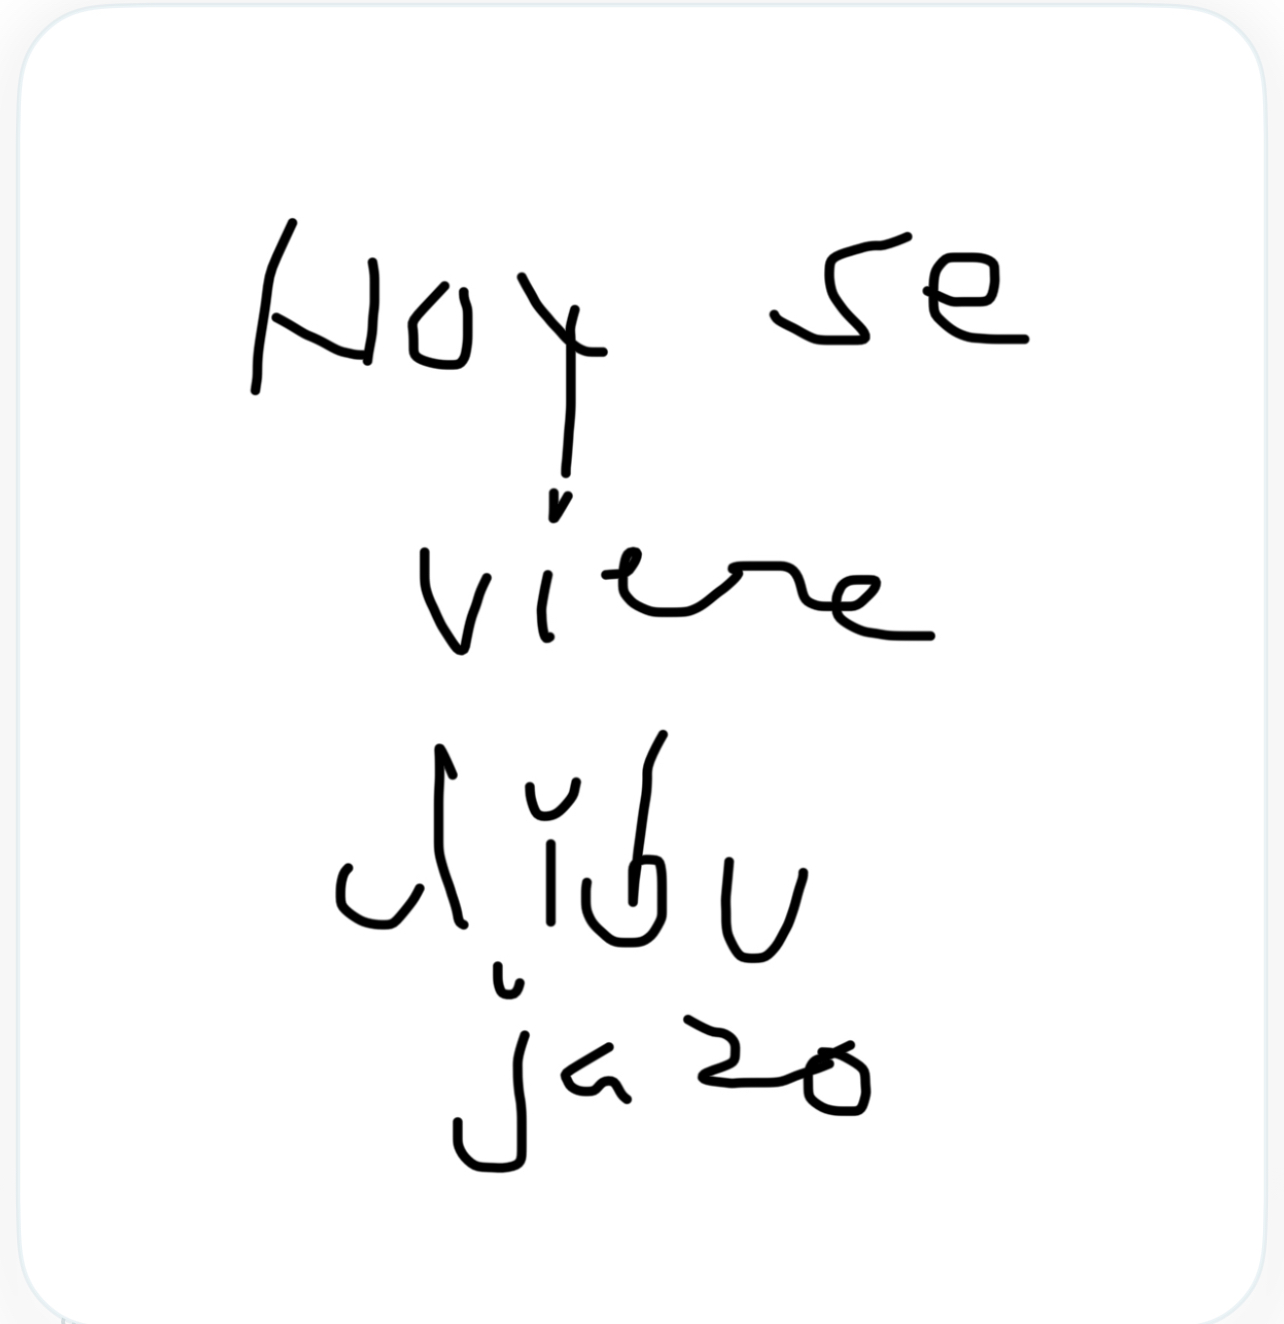 Hoy se
viene
dibu
jazo